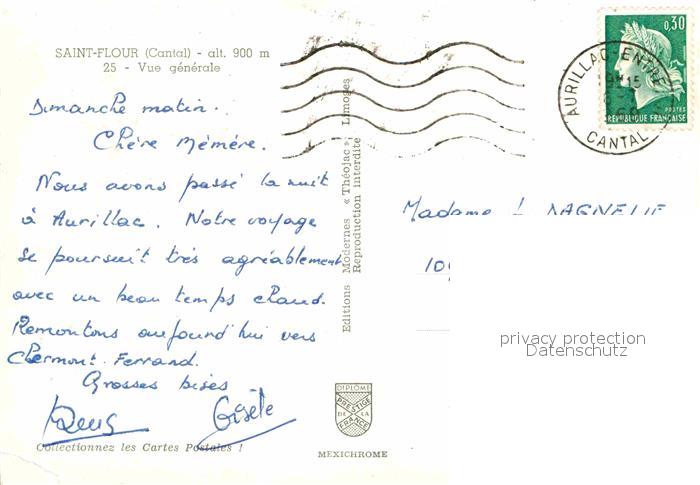 SAINT-FLOUR (Cantal) - alt. 900 m
25 - Vue générale
Dimanche matin.
Chère Mémère.
Nous avons passé la nuit
à Aurillac. Notre voyage
se poursuit très agréablement
avec un beau temps chaud.
Remontons aujourd'hui vers
Clermont-Ferrand.
Grosses bises
Gisèle
Collectionnez les Cartes Postales !
Editions Modernes « Théojac » Limoges
Reproduction interdite
DIPLOME
PRESTIGE
DE LA
FRANCE
MEXICHROME
0,30
POSTES
RÉPUBLIQUE FRANÇAISE
AURILLAC-ENTREPÔT
CANTAL
Madame
privacy protection
Datenschutz